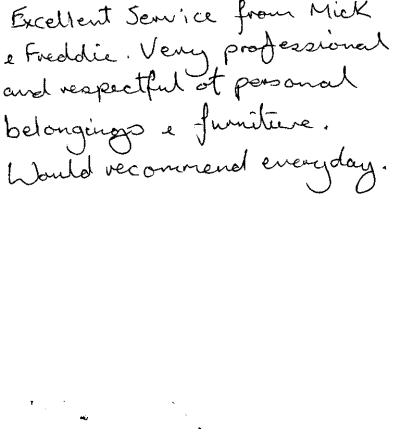 Excellent Service from Mick
e Freddie. Very professional
and respectful of personal
belongings e furniture.
Would recommend everyday.